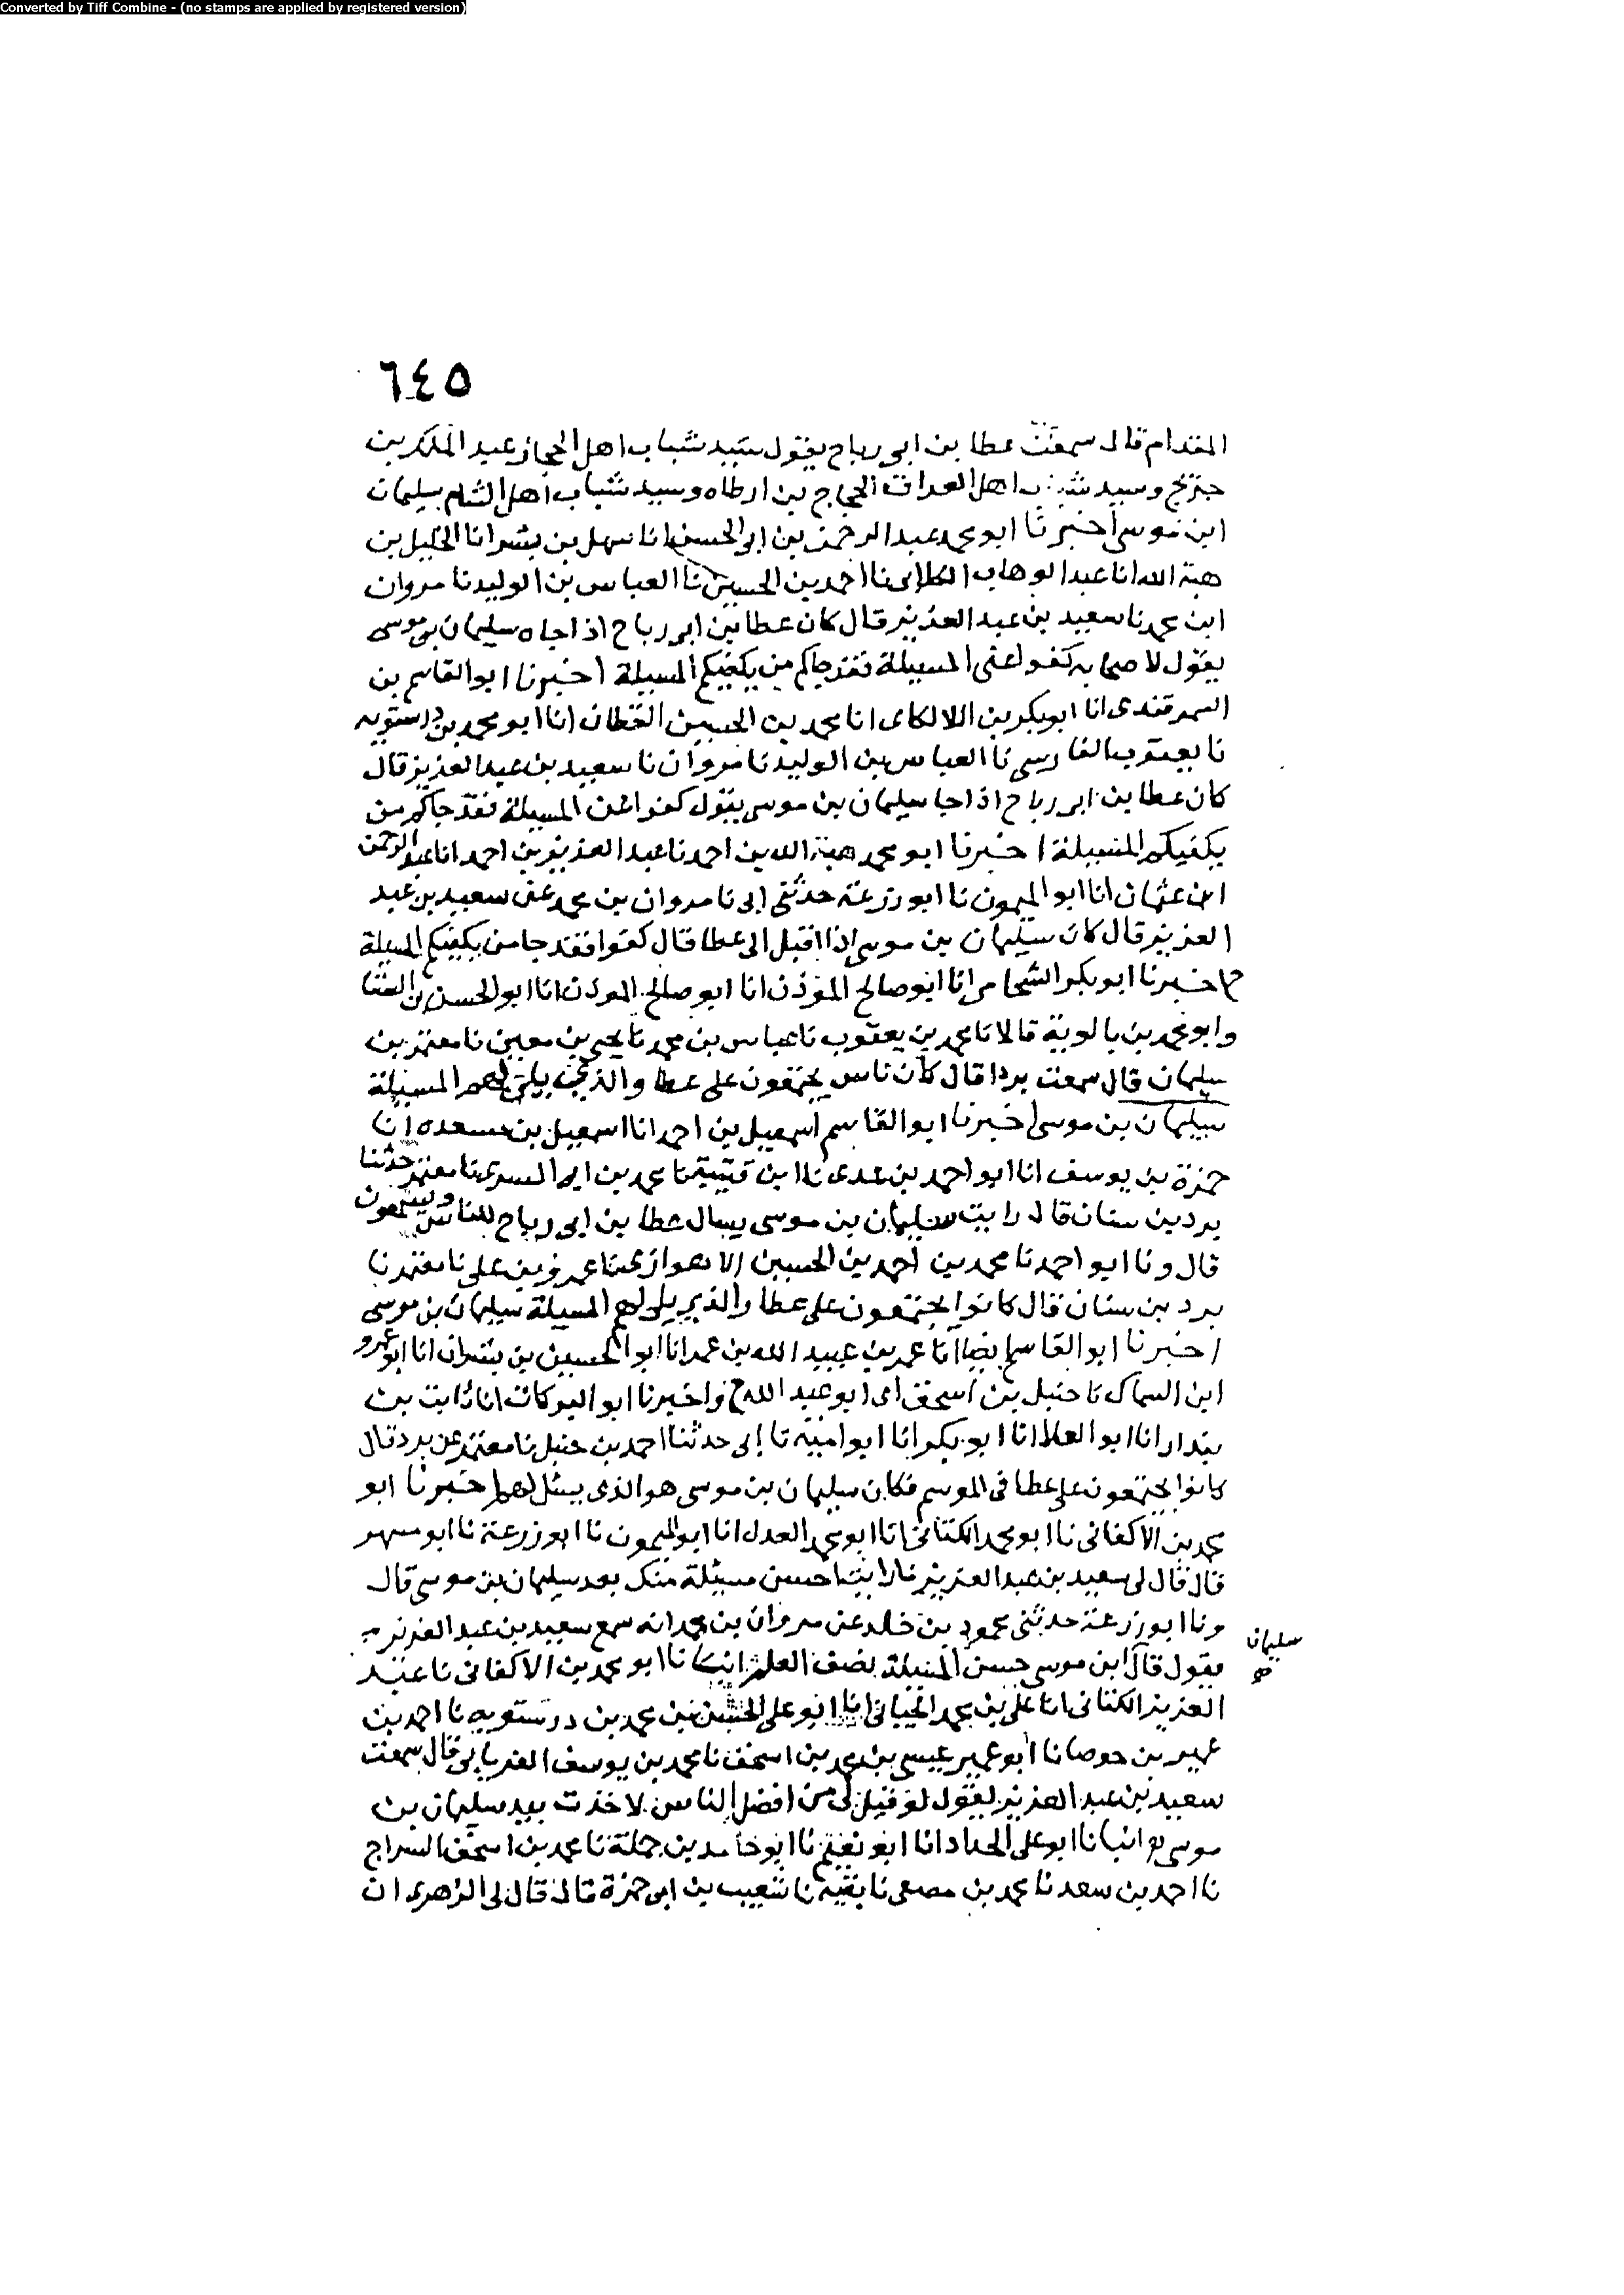 Converted by Tiff Combine - (no stamps are applied by registered version)
٦٤٥
المقدام قال سمعت عطا بن ابى رباح يقول سيد شباب اهل الحجاز عبد الملك بن
جريج وسيد شباب اهل العراق الحجاج بن ارطاه وسيد شباب اهل الشام سليمان
ابن موسى اخبرنا ابو محمد عبد الرحمن بن ابى الحسن انا سهل بن بشر انا الخليل بن
هبة الله انا عبد الوهاب الكلابى نا احمد بن الحسين نا العباس بن الوليد نا مروان
ابن محمد نا سعيد بن عبد العزيز قال كان عطا بن ابى رباح اذا جاه سليمان بن موسى
يقول لاصحابه كفوا عن المسيلة فقد جاكم من يكفيكم المسيلة اخبرنا ابو القاسم بن
السمرقندى انا ابو بكر بن اللالكاى انا محمد بن الحسين القطان انا ابو محمد بن درستويه
نا يعقوب الفارسى نا العباس بن الوليد نا مروان نا سعيد بن عبد العزيز قال
كان عطا بن ابى رباح اذا جا سليمان بن موسى يقول كفوا عن المسيلة فقد جاكم من
يكفيكم المسيلة اخبرنا ابو محمد هبة الله بن احمد نا عبد العزيز بن احمد انا عبد الرحمن
ابن عثمان انا ابو الميمون نا ابو زرعة حدثنى ابى نا مروان بن محمد عن سعيد بن عبد
العزيز قال كان سليمان بن موسى اذا اقبل الى عطا قال كفوا فقد جا من يكفيكم المسيلة
ح اخبرنا ابو بكر الشحامى انا ابو صالح المؤذن انا ابو صالح الموذن انا ابو الحسن بن السقا
وابو محمد بن بالوية قالا نا محمد بن يعقوب نا عباس بن محمد نا يحيى بن معين نا معتمر بن
سليمان قال سمعت بردا قال كان ناس يجتمعون على عطا والذى يلى لهم المسيلة
سليمان بن موسى اخبرنا ابو القاسم اسمعيل بن احمد انا اسمعيل بن مسعده انا
حمزة بن يوسف انا ابو احمد بن عدى نا ابن قتيبة نا محمد بن ابى السرى نا معتمر حدثنا
برد بن سنان قال رايت سليمان بن موسى يسال عطا بن ابى رباح للناس ويسمعون
قال ونا ابو احمد نا محمد بن احمد بن الحسين الاهوازى نا عمرو بن على نا معتمر نا
برد بن سنان قال كانوا يجتمعون على عطا والذى يلى لهم المسيلة سليمان بن موسى
اخبرنا ابو القاسم ايضا انا عمر بن عبيد الله بن عمر انا ابو الحسين بن بشران انا ابو عمرو
ابن السماك نا حنبل بن اسحق ابو عبد الله ح واخبرنا ابو البركات انا ثابت بن
بندار انا ابو العلا انا ابو بكر انا ابو امية نا ابى حدثنا احمد بن حنبل نا معتمر عن برد قال
كانوا يجتمعون على عطا فى الموسم فكان سليمان بن موسى هو الذى يسئل لهم اخبرنا ابو
محمد بن الاكفانى نا ابو محمد الكتانى انا ابو محمد العدل انا ابو الميمون نا ابو زرعة نا ابو مسهر
قال قال لى سعيد بن عبد العزيز ما رايت احسن مسيلة منك بعد سليمان بن موسى قال
ونا ابو زرعة حدثنى محمود بن خلد عن مروان بن محمد انه سمع سعيد بن عبد العزيز
سليمان
صح
يقول قال ابن موسى حسن المسيلة نصف العلم انبانا ابو محمد بن الاكفانى نا عبد
العزيز الكتانى انا على بن محمد الحنانى انا ابو على الحسن بن محمد بن درستويه نا احمد بن
عمير بن جوصا نا ابو عمير عيسى بن محمد بن اسحق نا محمد بن يوسف الفريابى قال سمعت
سعيد بن عبد العزيز يقول لو قيل لى من افضل الناس لاخذت بيد سليمان بن
موسى ح انبانا ابو على الحداد انا ابو نعيم نا ابو حامد بن جبلة نا محمد بن اسحق السراج
نا احمد بن سعد نا محمد بن مصفى نا بقية نا شعيب بن ابى حمزة قال قال لى الزهرى ان